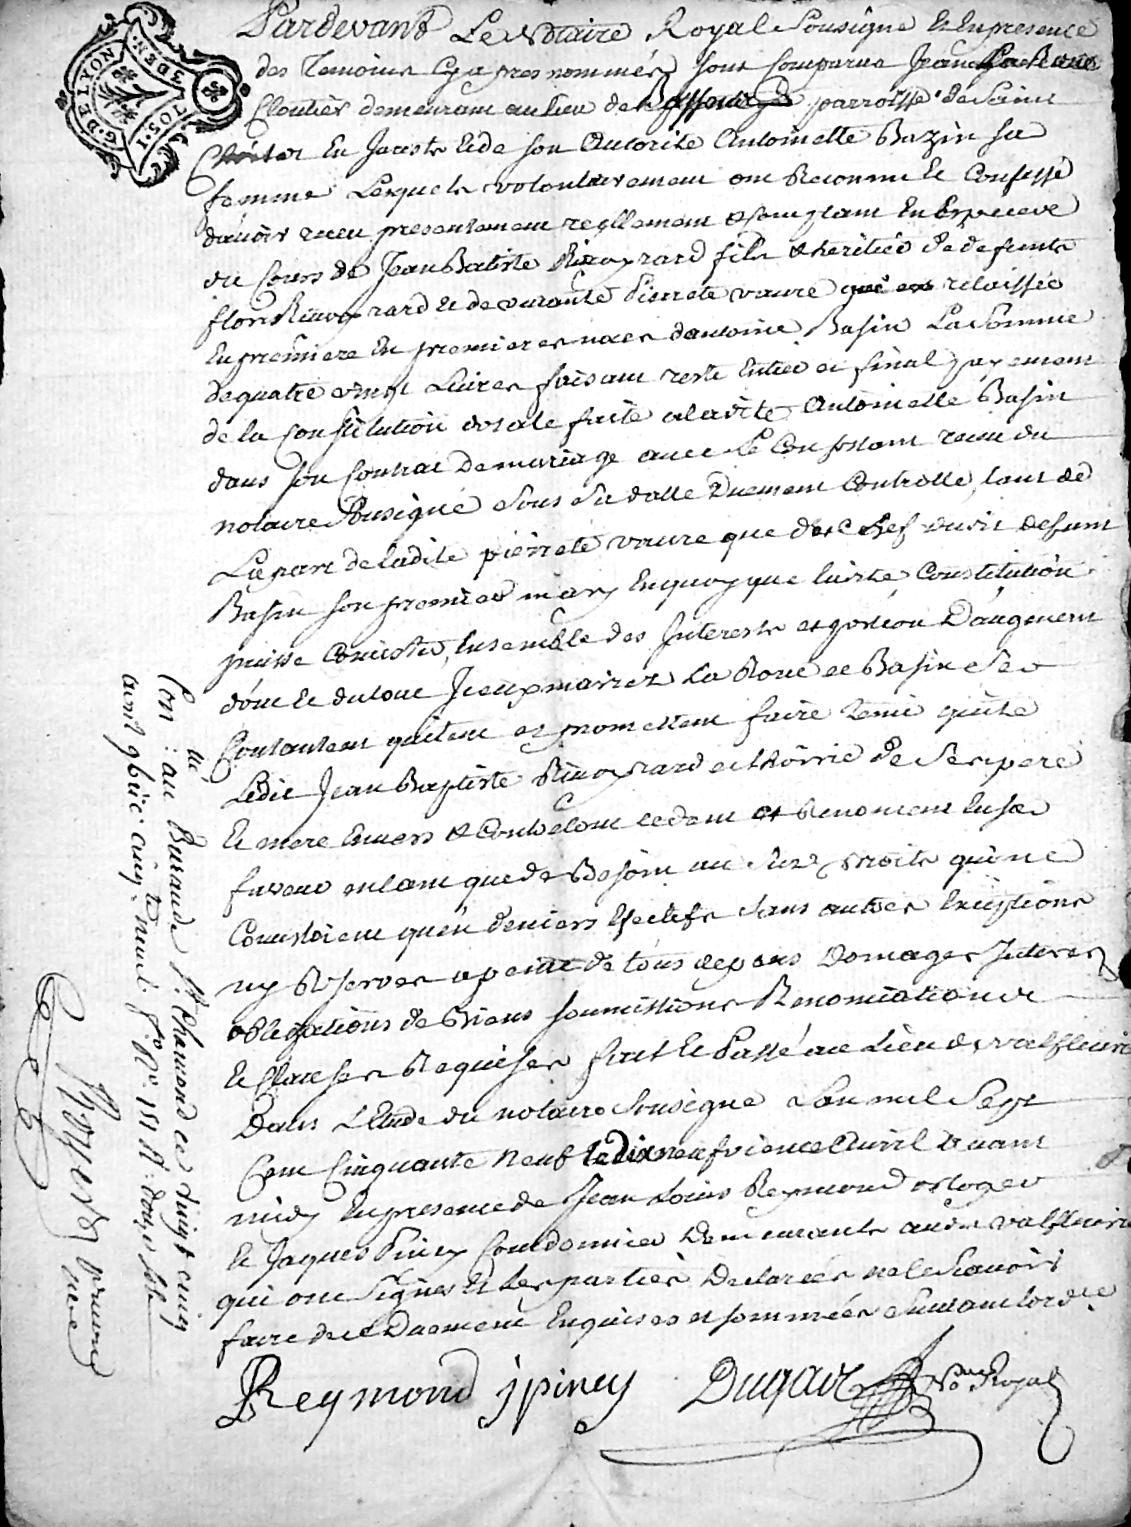 G. DE LYON
3 DEN
Pardevant Le Notaire Royal Sousigné Et En presence
des Temoins Cy apres nommés sont Comparus Jean La Roue
Cloutier demeurant au lieu de parroisse de Saint
En Jarests et de son Autorité Antoinette Bazin sa
femme Lesquels volontairement ont Reconnu et Confessé
davoir receu presentement reellement et comptant En Especes
de Jean Batiste fils et heritier de defunts
flory et de vivante Pierrete vaure relaissée
En premieres noces dantoine Basin La Somme
de quatre vingt Livres faisant reste Entier et final payement
de la Constitution dotale faite a ladite Antoinette Basin
dans son Contrat De mariage avec Le Conpostant receu du
notaire Sousigné Sous Sa datte Duement Controllé, tant de
La part de ladite pierrete vaure que du Chef dudit defunt
Basin son premier mary En quoy que ladite Constitution
puisse Concister, Ensemble des Interests et portion Daugment
dont et du tout Iceux mariez La Roue et Basin Se
Contantent quitent et promettent faire tenir quite
Ledit Jean Baptiste et hoirie de Ses pere
Et mere Envers et Contre tout cedent et Renoncent En sa
faveur entant que de Besoin au Surplus droits qui ne
Concistoient quen deniers Efectifs Sans autres Exceptions
ny Reserves a peine de tous depens Domages Interes
obligations de Biens soumissions Renonciations
et Clauses Requises fait et Passé au Lieu de valfleurie
Dans L'Etude du notaire Sousigné Lan mil Sept
Cent Cinquante Neuf le dix neufvieme Avril avant
midy En presence de Jean Louis Reymond orloger
et Jaques Piney Cordonnier Demeurants audt valfleurie
qui ont Signés et Les parties Declarées ne le Scavoir
faire de ce Duement Enquises et sommées Suivant lordce
Reymond jpiney Dugair No.re Royal
Con: au Buraude St Chamond ce vingt cinq
avril gbiic cinq.te neuf. fo. Ro. 151 R: douze sols